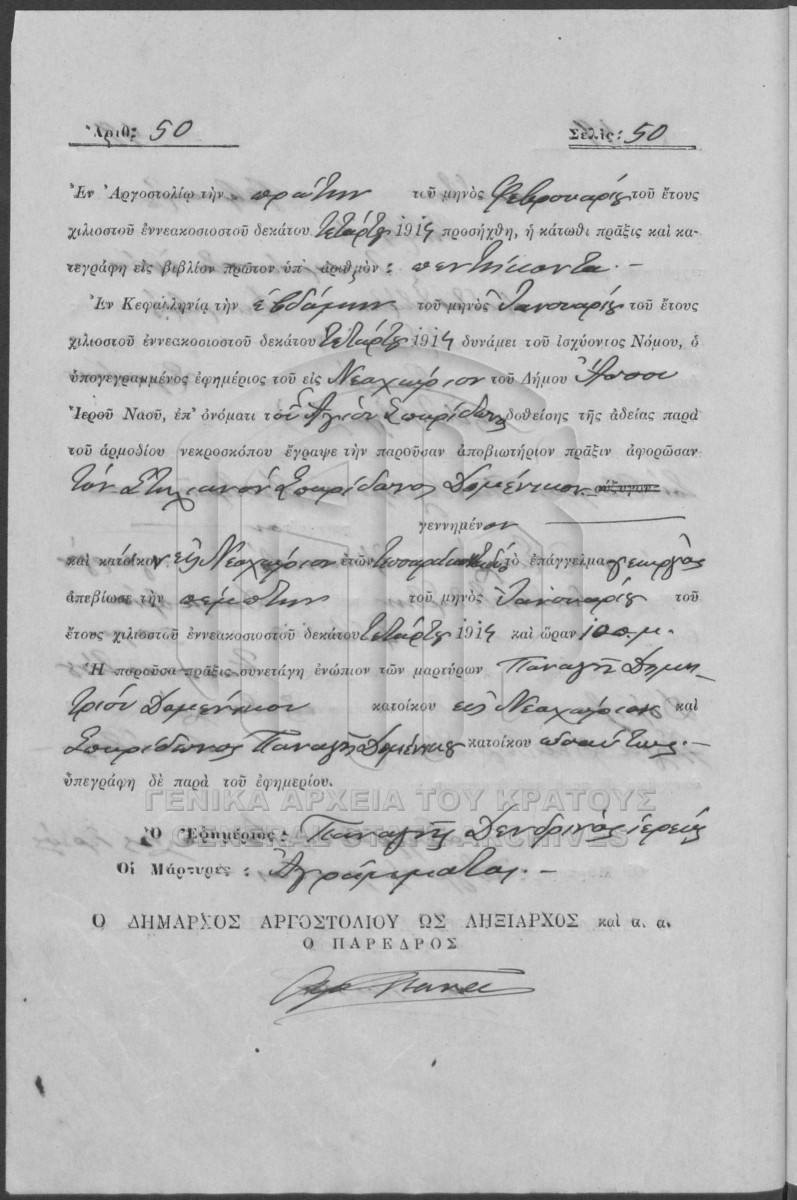 Ἀριθ: 50 Σελὶς: 50
Ἐν Ἀργοστολίῳ τὴν πρώτην τοῦ μηνὸς Φεβρουαρίου τοῦ ἔτους
χιλιοστοῦ ἐννεακοσιοστοῦ δεκάτου τετάρτου 1914 προσήχθη, ἡ κάτωθι πρᾶξις καὶ κα-
τεγράφη εἰς βιβλίον πρῶτον ὑπ' ἀριθμὸν: πεντήκοντα.—
Ἐν Κεφαλληνίᾳ τὴν ἑβδόμην τοῦ μηνὸς Ἰανουαρίου τοῦ ἔτους
χιλιοστοῦ ἐννεακοσιοστοῦ δεκάτου τετάρτου 1914 δυνάμει τοῦ ἰσχύοντος Νόμου, ὁ
ὑπογεγραμμένος ἐφημέριος τοῦ εἰς Νεοχώριον τοῦ Δήμου Ἄσσου
Ἱεροῦ Ναοῦ, ἐπ' ὀνόματι τοῦ Ἁγίου Σπυρίδωνος δοθείσης τῆς ἀδείας παρὰ
τοῦ ἁρμοδίου νεκροσκόπου ἔγραψε τὴν παροῦσαν ἀποβιωτήριον πρᾶξιν ἀφορῶσαν
τὸν Στυλιανὸν Σπυρίδωνος Δομένικον σύζυγον
γεννημένον
καὶ κάτοικον εἰς Νεοχώριον ἐτῶν τὸ ἐπάγγελμα γεωργὸς
ἀπεβίωσε τὴν πέμπτην τοῦ μηνὸς Ἰανουαρίου τοῦ
ἔτους χιλιοστοῦ ἐννεακοσιοστοῦ δεκάτου τετάρτου 1914 καὶ ὥραν 10 π.μ.
Ἡ παροῦσα πρᾶξις συνετάγη ἐνώπιον τῶν μαρτύρων Παναγῆ Δημη-
τρίου Δομενίκου κατοίκου εἰς Νεοχώριον καὶ
Σπυρίδωνος Παναγῆ Δομενίκου κατοίκου ὡσαύτως.—
ὑπεγράφη δὲ παρὰ τοῦ ἐφημερίου.
ΓΕΝΙΚΑ ΑΡΧΕΙΑ ΤΟΥ ΚΡΑΤΟΥΣ
Ὁ Ἐφημέριος: Παναγῆς Δενδρινὸς ἱερεὺς
GENERAL STATE ARCHIVES
Οἱ Μάρτυρες: Ἀγράμματοι.—
Ο ΔΗΜΑΡΧΟΣ ΑΡΓΟΣΤΟΛΙΟΥ ΩΣ ΛΗΞΙΑΡΧΟΣ καὶ α. α.
Ο ΠΑΡΕΔΡΟΣ